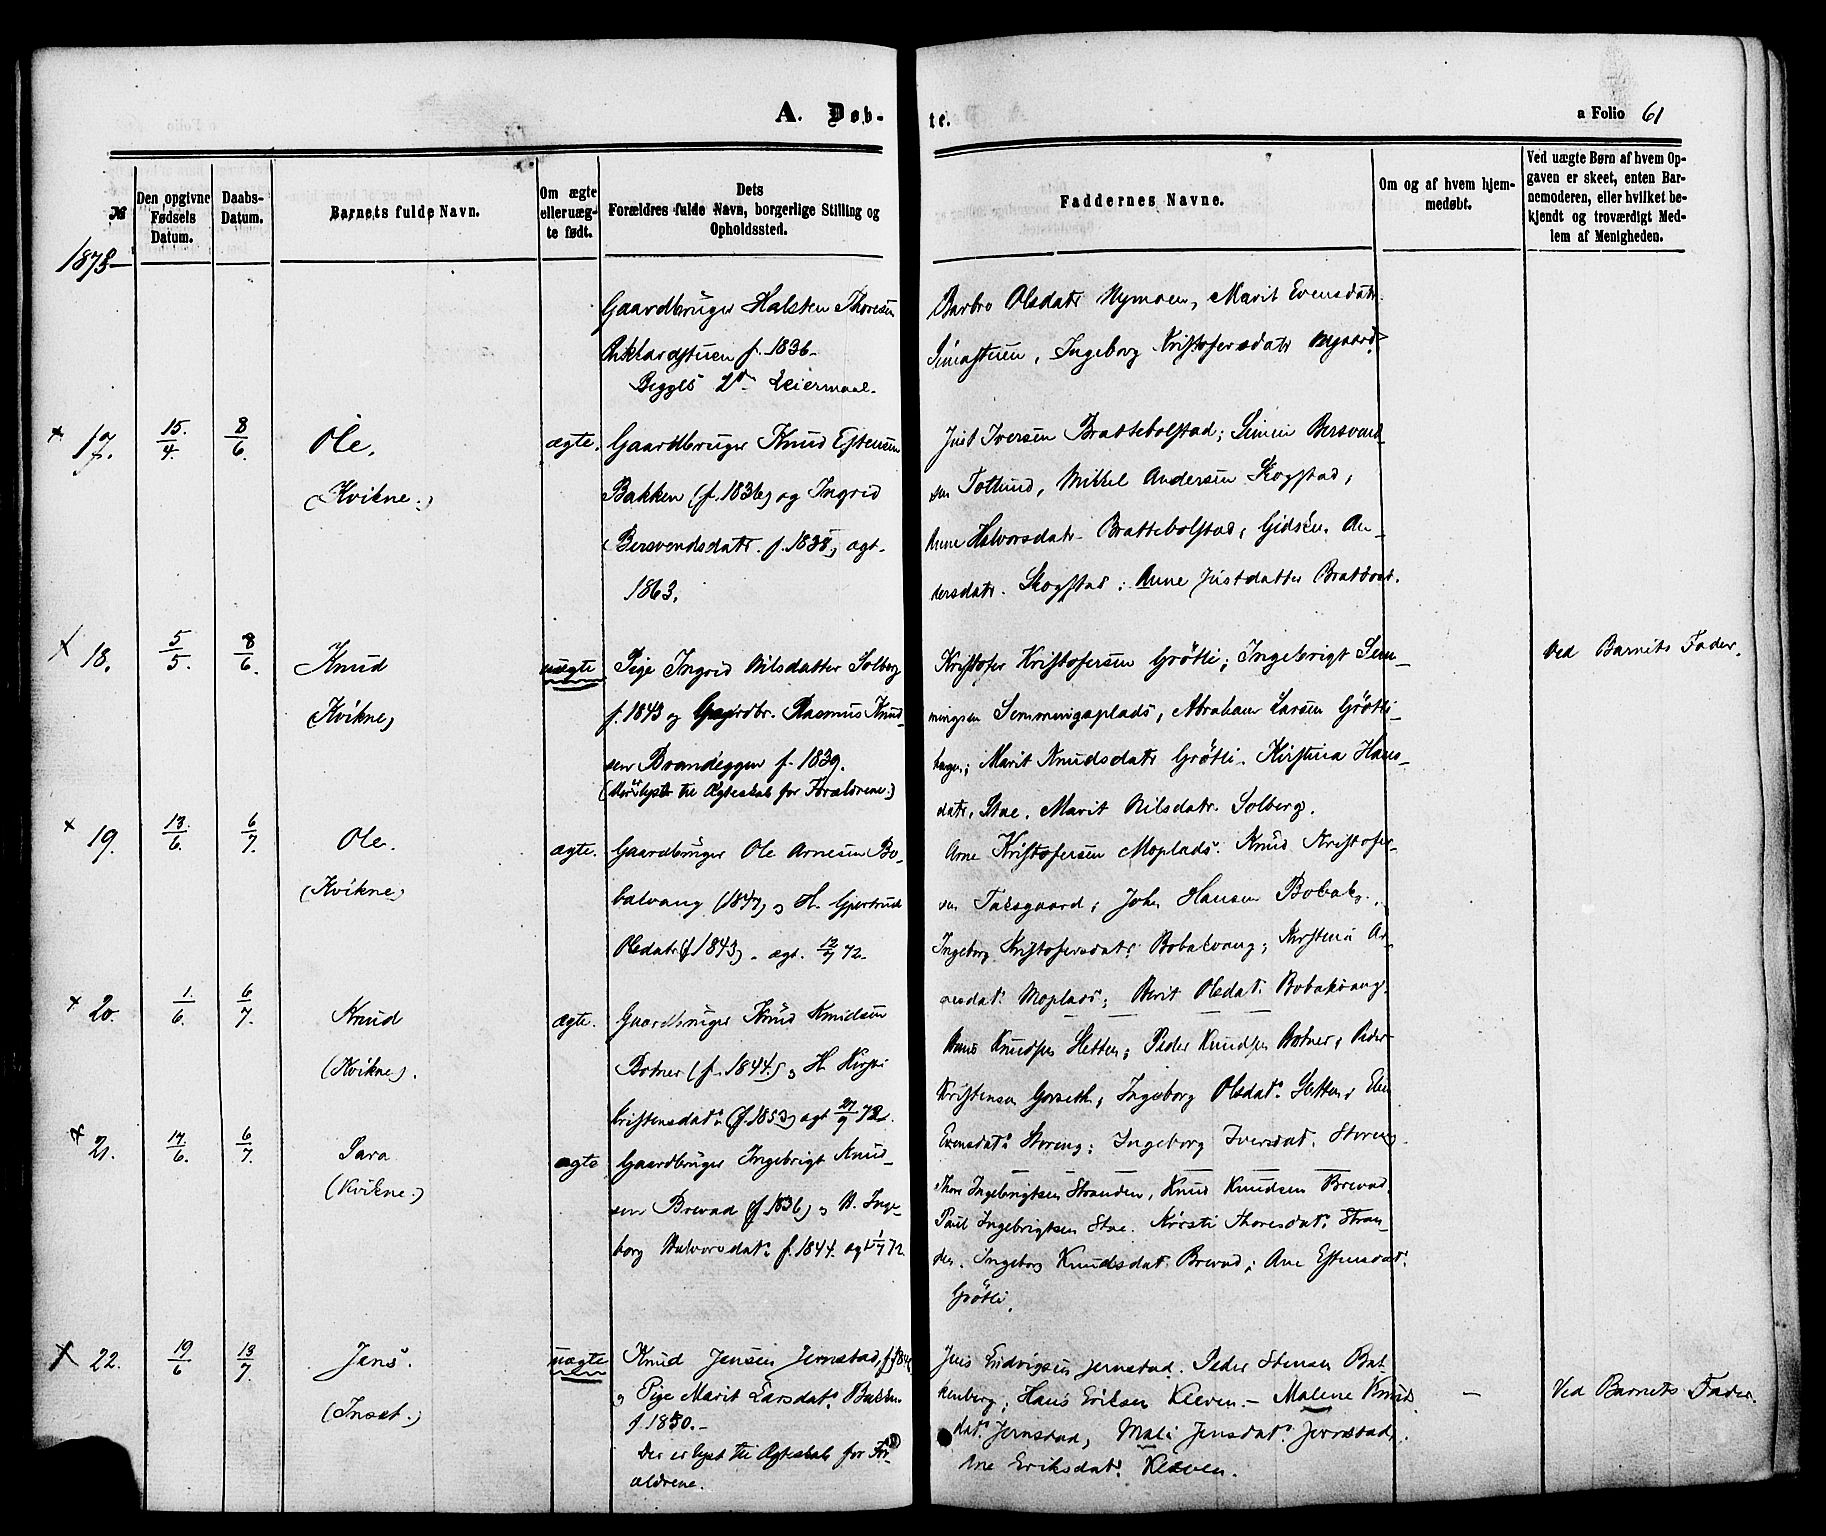 A. Døb-
te.
a Folio 61
№
Den opgivne
Fødsels
Datum.
Daabs-
Datum.
Barnets fulde Navn.
Om ægte
eller uæg-
te født.
Dets
Forældres fulde Navn, borgerlige Stilling og
Opholdssted.
Faddernes Navne.
Om og af hvem hjem-
medøbt.
Ved uægte Børn af hvem Op-
gaven er skeet, enten Bar-
nemoderen, eller hvilket be-
kjendt og troværdigt Med-
lem af Menigheden.
1878-
Gaardbruger Halsten Thoresen
f. 1836.
Begges 2det Leiermaal.
Barbro Olsdatr Nymoen, Marit Evensdatr
Simastuen, Ingeborg Kristofersdatr
+ 17. 15/4. 8/6. Ole. ægte. Gaardbruger Knud Estensen
(Kvikne.) Bakken (f. 1836) og Ingrid
Bersvendsdatr. f. 1838, ægt.
1863.
Just Iversen Brattebolstad; Simen Bersvend-
sen Tollund, Mikkel Andersen Skogstad,
Anne Halvorsdatr Brattebolstad, Gidsken An-
dersdatr. Skogstad; Anne Justdatter
+ 18. 5/5. 8/6. Knud uægte Pige Ingrid Nilsdatter Solberg
(Kvikne) f. 1843 og Gaardbr. Rasmus Knud-
sen Brandeggen f. 1839.
(Der er lyst til Ægteskab for Forældrene.)
Kristofer Kristofersen Grötli; Ingebrigt Sem-
mingsen Semmingsplads, Abraham Larsen Grötli-
hagen; Marit Knudsdatr Grötli. Kirstina Hans-
datr. Stae. Marit Nilsdatr. Solberg.
Ved Barnets Fader.
+ 19. 13/6. 6/7. Ole. ægte. Gaardbruger Ole Arnesen Bo-
(Kvikne) balvang (1847) og H. Gjertrud
Olsdatr (f. 1843). ægt. 12/7 72.
Arne Kristofersen Moplads. Knud Kristofer-
sen Taksgaard; John Hansen Bobak.,
Ingeborg Kristofersdatr. Bobakvang; Kirstina Ar-
nesdatr Moplads; Berit Olsdatr. Bobakvang.
+ 20. 1/6. 6/7. Knud ægte. Gaardbruger Knud Knudsen
(Kvikne). Botner (f. 1844.) og H. Kirsti
Kristensdatr. (f. 1853) ægt 27/9 72.
Hans Knudsen Sletten; Peder Knudsen Botner, Peder
Kristensen Gorseth, Ingeborg Olsdatr. Sletten, Elen
Evensdatr. Storeng; Ingeborg Iversdat. Storeng.
+ 21. 14/6. 6/7. Sara ægte Gaardbruger Ingebrigt Knud-
(Kvikne.) sen Brevad (f. 1836) og H. Inge-
borg Halvorsdatr. f. 1844. ægt 1/7 72
Thore Ingebrigtsen Stranden, Knud Knudsen Brevad.
Paul Ingebrigtsen Stae. Kirsti Thoresdatr. Stran-
den. Ingeborg Knudsdat. Brevad; Ane Estensdat.
Grötli.
+ 22. 19/6 13/7. Jens. uægte Knud Jensen Jernstad,
(Inset.) og Pige Marit Larsdatr. Bakken
f. 1850.-
Der er lyst til Ægteskab for For-
ældrene.
Jens Ludvigsen Jernstad. Peder Stensen Bak-
kenberg; Hans Eriksen Kleven. - Malene Knuds
datr. Jernstad, Mali Jensdatr. Jernstad,
Ane Eriksdatr. Kleven.
- Ved Barnets Fader.